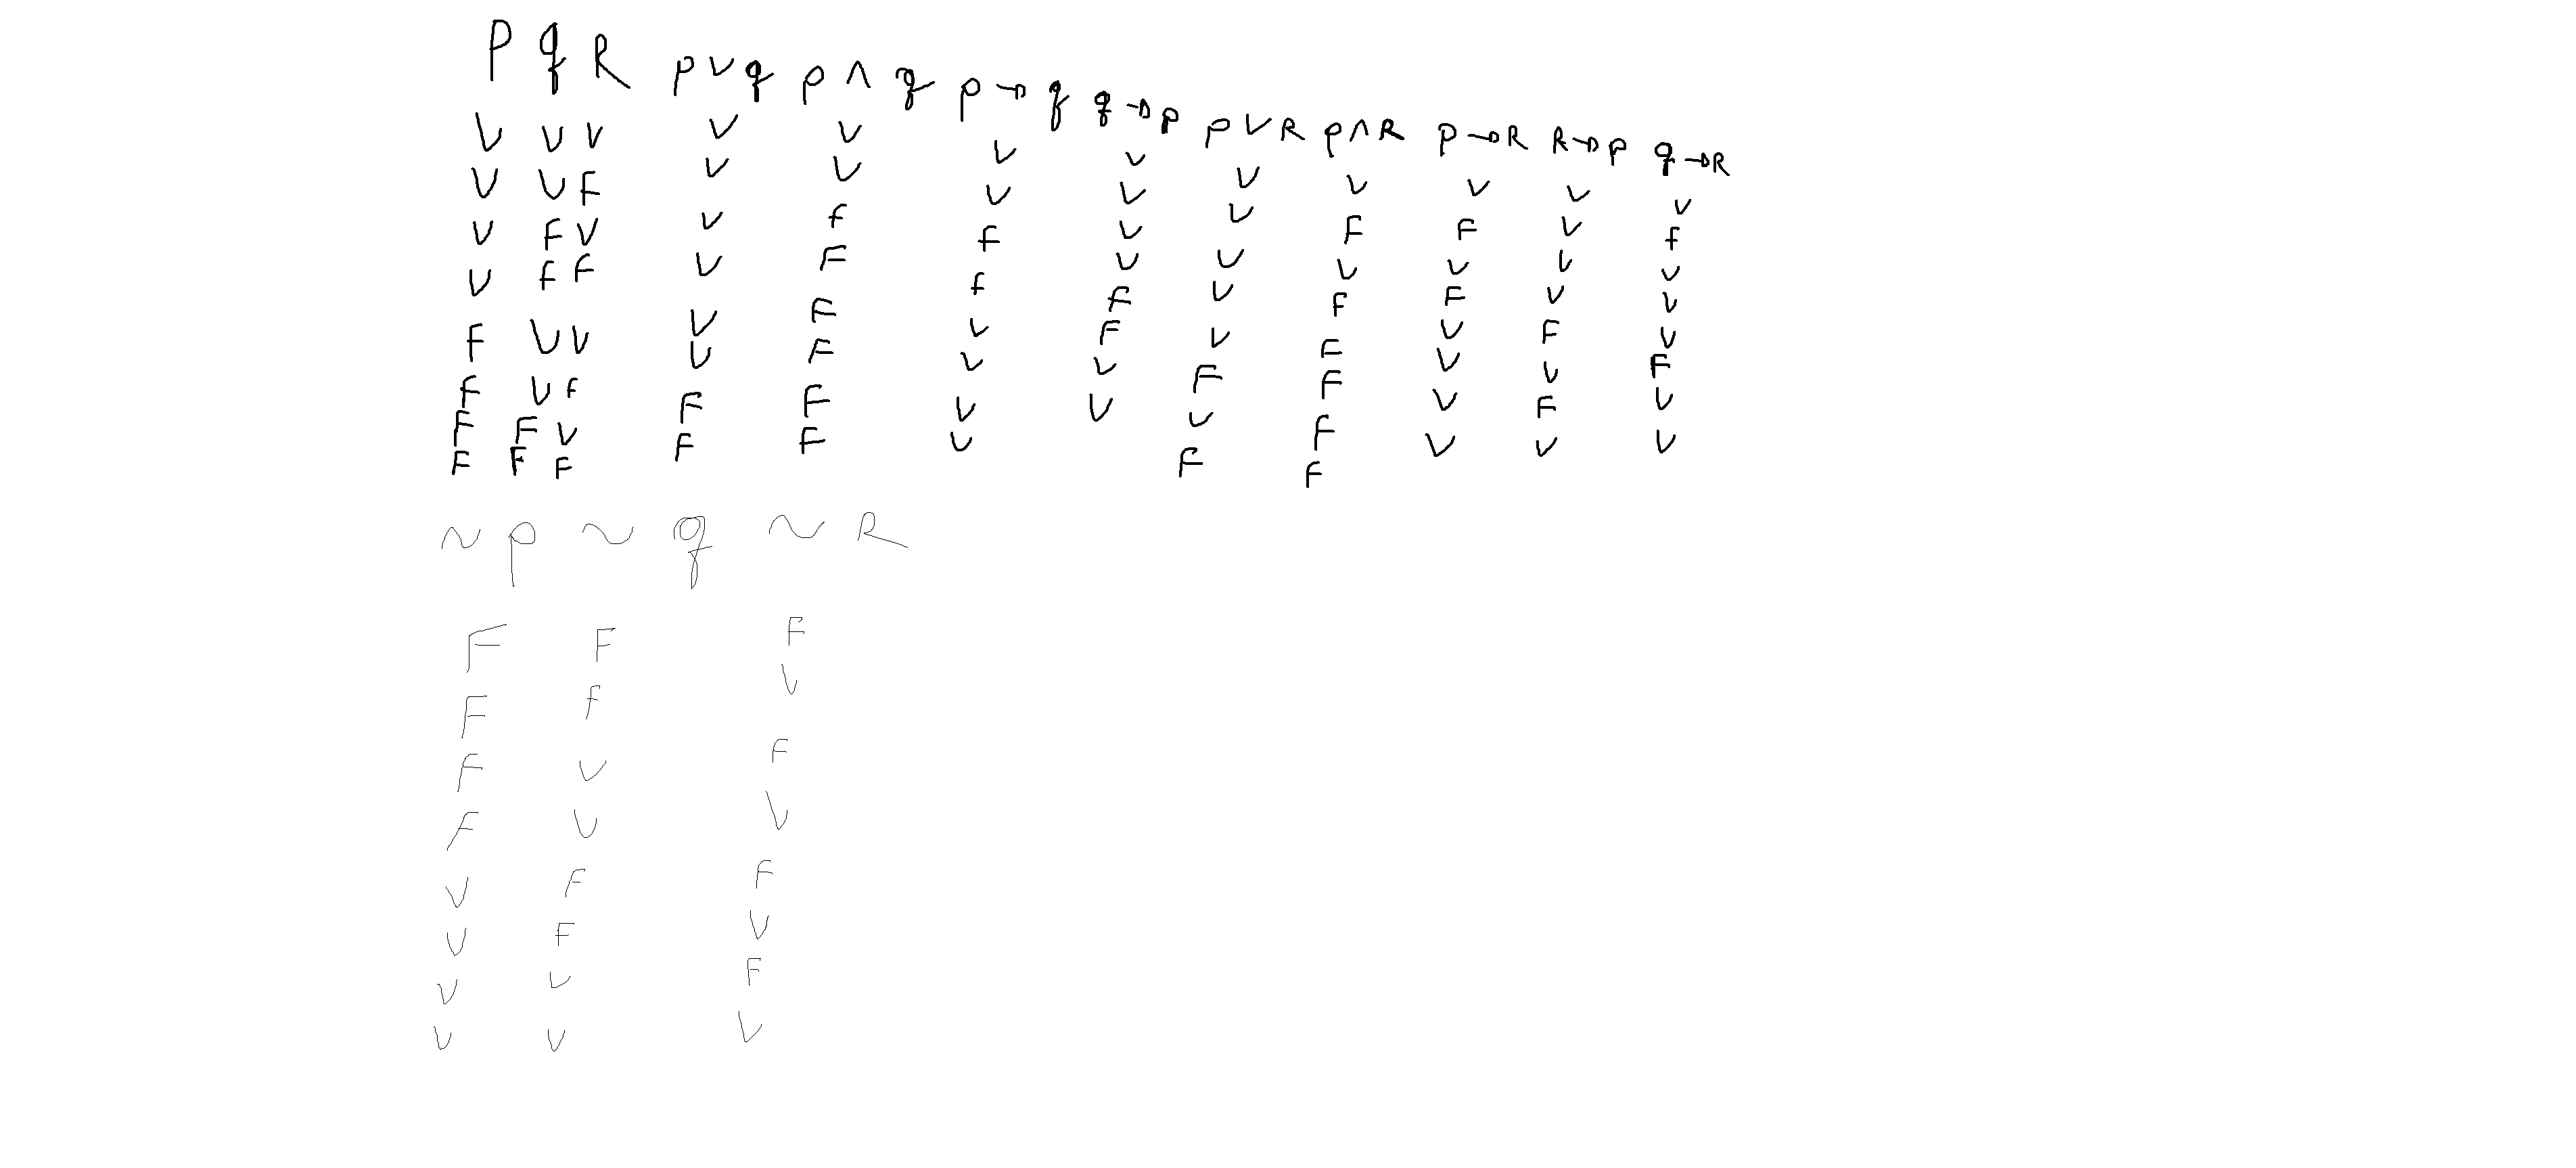 P q R p ∨ q p ∧ q p → q q → p p ∨ R p ∧ R p → R R → p q → R
V V V V V V V V V V V V
V V F V V V V V F F V f
V F V V f F V V V V V V
V f F V F f V V F F V V
F V V V F V F V F V F V
F V f V F V F F F V V F
F F V F F V V V F V F V
F F F F F V V F F V V V
~ p ~ q ~ R
F F F
F f V
F V F
F V V
V F F
V F V
V V F
V V V